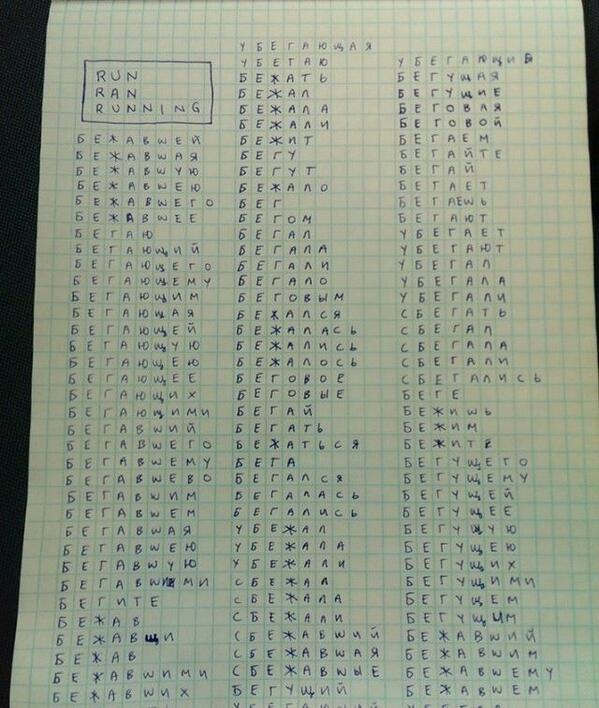 RUN
RAN
RUNNING
БЕЖАВШЕЙ
БЕЖАВШАЯ
БЕЖАВШУЮ
БЕЖАВШЕЮ
БЕЖАВШЕГО
БЕЖАВШЕЕ
БЕГАЮ
БЕГАЮЩИЙ
БЕГАЮЩЕГО
БЕГАЮЩЕМУ
БЕГАЮЩИМ
БЕГАЮЩАЯ
БЕГАЮЩЕЙ
БЕГАЮЩУЮ
БЕГАЮЩЕЮ
БЕГАЮЩЕЕ
БЕГАЮЩИХ
БЕГАЮЩИМИ
БЕГАВШИЙ
БЕГАВШЕГО
БЕГАВШЕМУ
БЕГАВШЕВО
БЕГАВШИМ
БЕГАВШЕМ
БЕГАВШАЯ
БЕГАВШЕЮ
БЕГАВШУЮ
БЕГАВШИМИ
БЕГИТЕ
БЕЖАВ
БЕЖАВЩИ
БЕЖАВ
БЕЖАВШИМИ
БЕЖАВШИХ
УБЕГАЮЩАЯ
УБЕГАЮ
БЕЖАТЬ
БЕЖАЛ
БЕЖАЛА
БЕЖАЛИ
БЕЖИТ
БЕГУ
БЕГУТ
БЕЖАЛО
БЕГ
БЕГОМ
БЕГАЛ
БЕГАЛА
БЕГАЛИ
БЕГАЛО
БЕГОВЫМ
БЕЖАЛСЯ
БЕЖАЛАСЬ
БЕЖАЛИСЬ
БЕЖАЛОСЬ
БЕГОВОЕ
БЕГОВЫЕ
БЕГАЙ
БЕГАТЬ
БЕЖАТЬСЯ
БЕГА
БЕГАЛСЯ
БЕГАЛАСЬ
БЕГАЛИСЬ
УБЕЖАЛ
УБЕЖАЛА
УБЕЖАЛИ
СБЕЖАЛ
СБЕЖАЛА
СБЕЖАЛИ
СБЕЖАВШИЙ
СБЕЖАВШАЯ
СБЕЖАВШЫЕ
БЕГУЩИЙ
УБЕГАЮЩИЕ
БЕГУЩАЯ
БЕГУЩИЕ
БЕГОВАЯ
БЕГОВОЙ
БЕГАЕМ
БЕГАЙТЕ
БЕГАЙ
БЕГАЕТ
БЕГАЕШЬ
БЕГАЮТ
УБЕГАЕТ
УБЕГАЮТ
УБЕГАЛ
УБЕГАЛА
УБЕГАЛИ
СБЕГАТЬ
СБЕГАЛ
СБЕГАЛА
СБЕГАЛИ
СБЕГАЛИСЬ
БЕГЕ
БЕЖИШЬ
БЕЖИМ
БЕЖИТЕ
БЕГУЩЕГО
БЕГУЩЕМУ
БЕГУЩЕЙ
БЕГУЩЕЕ
БЕГУЩУЮ
БЕГУЩЕЮ
БЕГУЩИХ
БЕГУЩИМИ
БЕГУЩЕМ
БЕГУЩЫМ
БЕЖАВШИЙ
БЕЖАВШИМ
БЕЖАВШЕМУ
БЕЖАВШЕМ